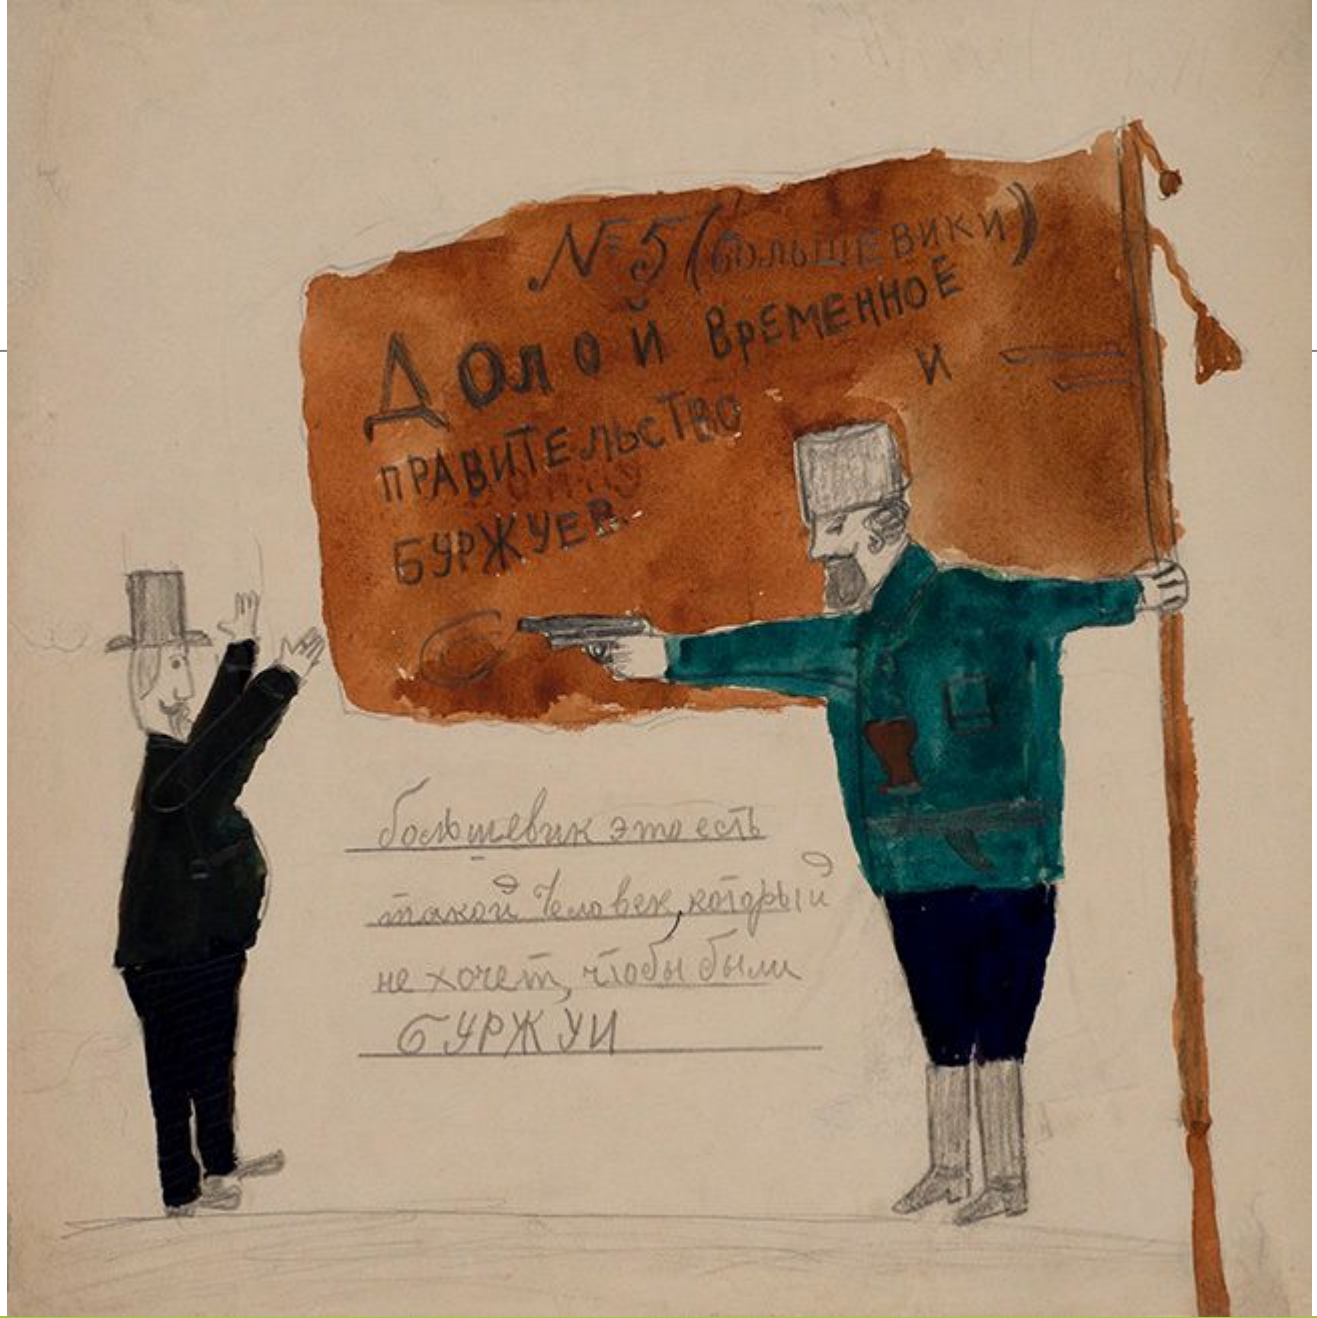 № 5 (большевики)
Долой временное
и
правительство
буржуев
большевик это есть
такой человек, который
не хочет, чтобы были
БУРЖУИ